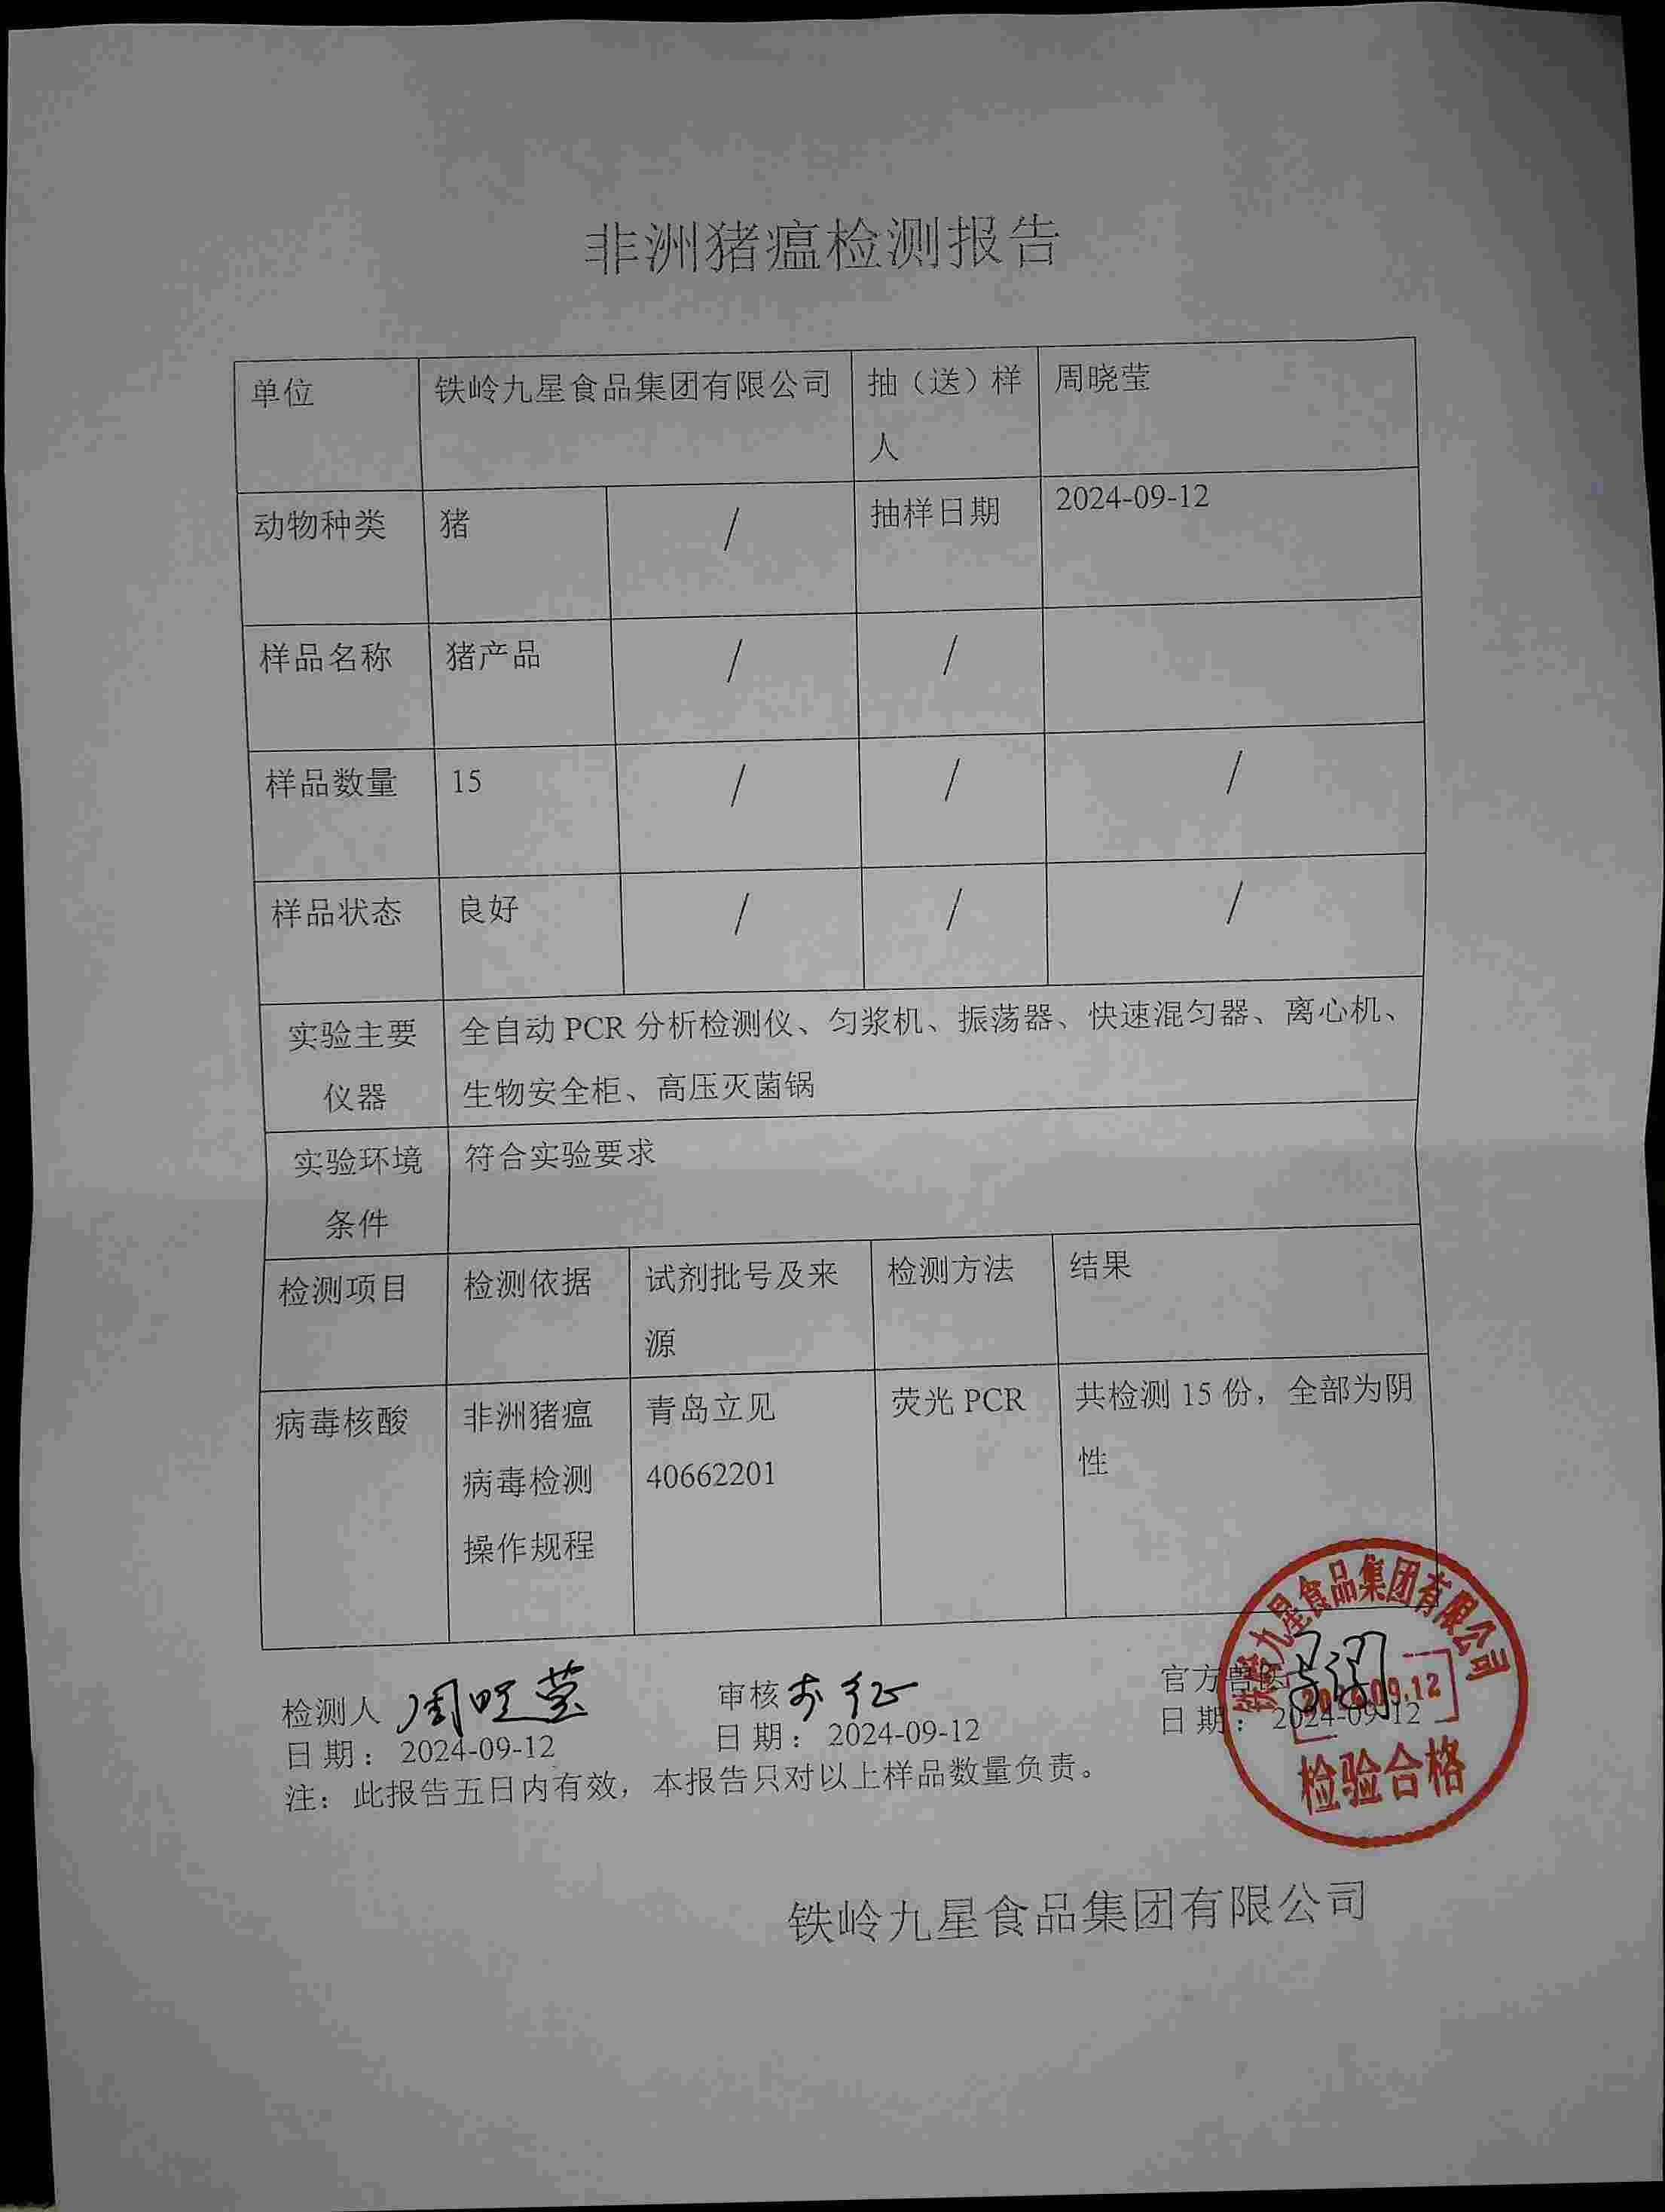 非洲猪瘟检测报告
单位 铁岭九星食品集团有限公司 抽（送）样人 周晓莹
动物种类 猪 / 抽样日期 2024-09-12
样品名称 猪产品 / /
样品数量 15 / / /
样品状态 良好 / / /
实验主要仪器 全自动 PCR 分析检测仪、匀浆机、振荡器、快速混匀器、离心机、
生物安全柜、高压灭菌锅
实验环境条件 符合实验要求
检测项目 检测依据 试剂批号及来源 检测方法 结果
病毒核酸 非洲猪瘟病毒检测操作规程 青岛立见 40662201 荧光 PCR 共检测 15 份，全部为阴性
检测人 周晓莹 审核 官方兽医
日期：2024-09-12 日期：2024-09-12 日期：2024-09-12
注：此报告五日内有效，本报告只对以上样品数量负责。
铁岭九星食品集团有限公司
2024.09.12
检验合格
铁岭九星食品集团有限公司